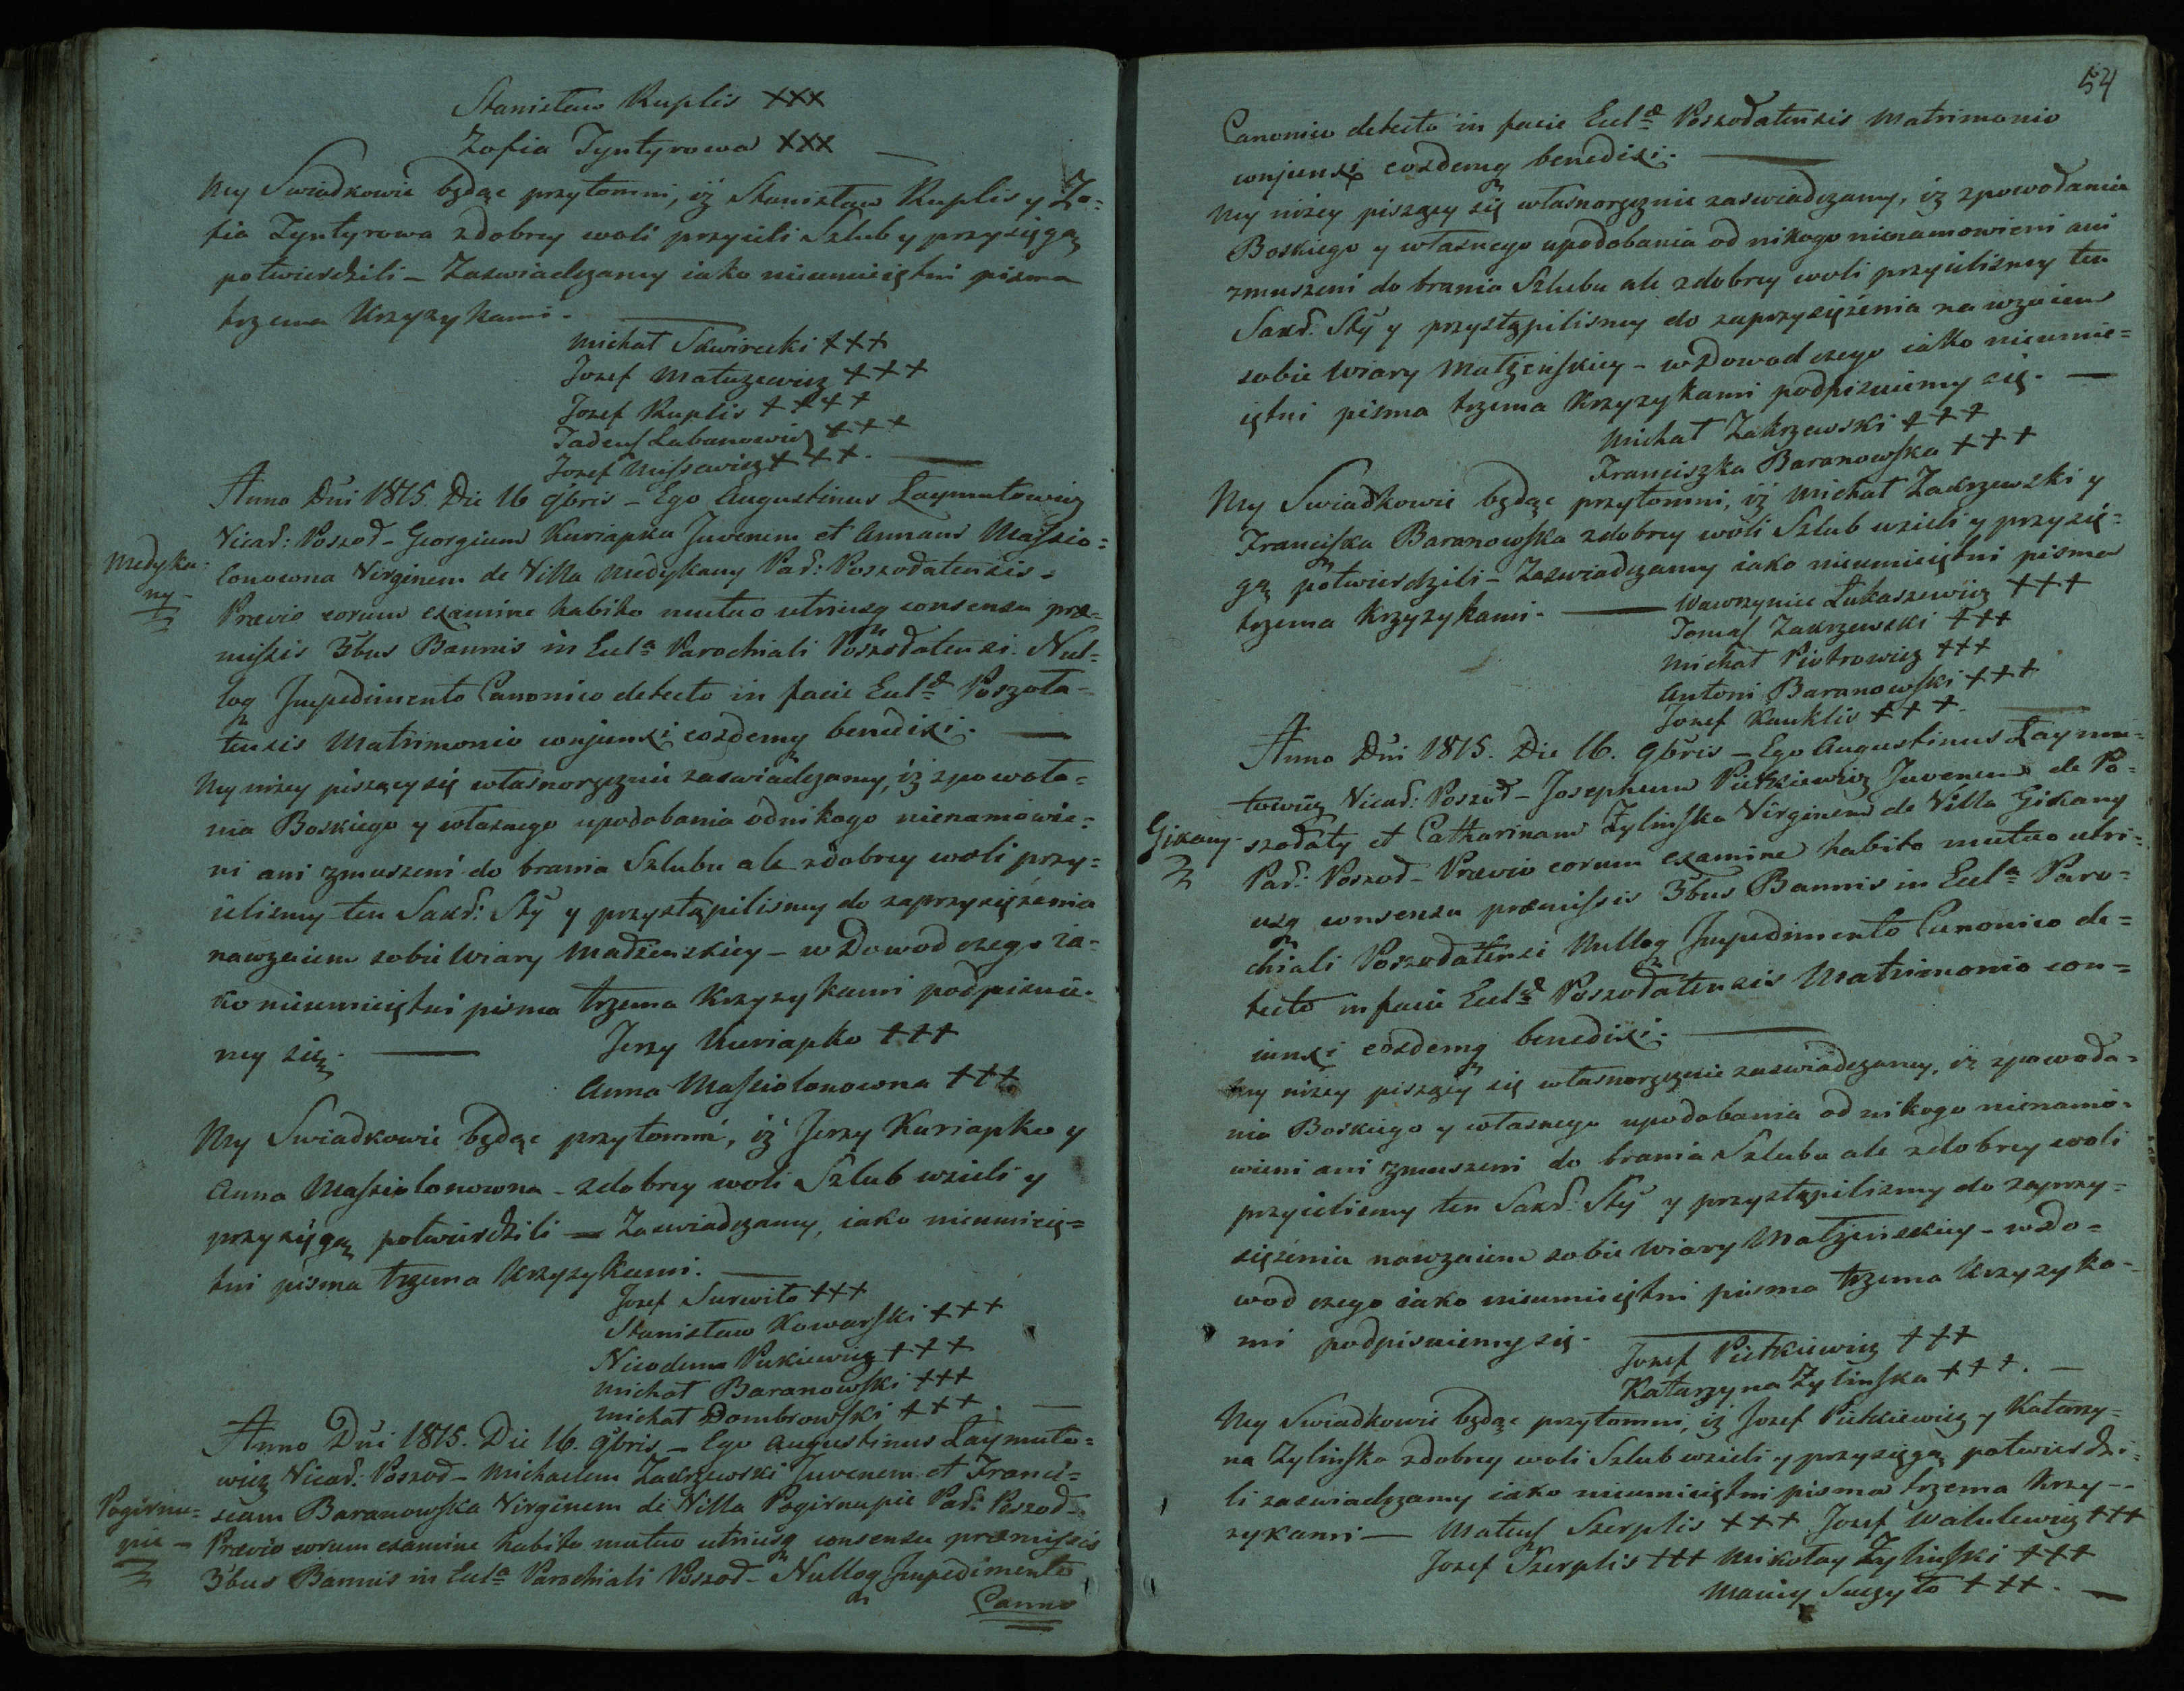 Stanisław Ruplis +++
Zofia Tyntyrowa +++
My Swiadkowie będąc przytomni, iż Stanisław Ruplis y Zo=
fia Tyntyrowa zdobrey woli przyieli Szlub y przysięgą
potwierdzili – Zaswiadczamy iako nieumieiętni pisma
trzema Krzyzykami.
Michał Skwirecki +++
Jozef Matuzewicz +++
Jozef Ruplis ++++
Tadeusz Labanowicz +++
Jozef Missewicz +++.
Anno Dni 1815. Die 16 9bris – Ego Augustinus Laymutowicz
Vicar: Poszod – Georgium Kuriapka Juvenem et Annam Massio=
lonowna Virginem de Villa Medykany Par: Poszodatensis.
Medyka=
ny –
Prævio eorum examine habito mutuo utriusq consensu præ=
missis 3bus Bannis in Eccla Parochiali Poszodatensi. Nul=
loq Impedimento Canonico detecto in facie Ecclæ Poszota=
tensis Matrimonio conjunxi eosdemq benedixi.
My nizey piszący się własnoręcznie zaswiadczamy, iż zpowoła=
nia Boskiego y własnego upodobania odnikogo nienamowie=
ni ani zmuszeni do brania Szlubu ale zdobrey woli przy=
ielismy ten Sakr: Sty y przystąpilismy do zaprzysiężenia
nawzaiem sobie Wiary Madżenskiey – w Dowod czego ia=
ko nieumieiętni pisma trzema Krzyzykami podpisuie=
my się.
Jerzy Kuriapko +++
Anna Massiolonowna +++
My Swiadkowie będąc przytomni, iż Jerzy Kuriapko y
Anna Massiolonowna – zdobrey woli Szlub wzieli y
przysięgą potwierdzili – Zaswiadczamy, iako nieumieię=
tni pisma trzema Krzyzykami.
Jozef Surwiło +++
Stanisław Kowarski +++
Nicodem Pukiewicz +++
Michał Baranowski +++
Michał Dombrowski +++.
Anno Dni 1815. Die 16. 9bris – Ego Augustinus Laymuto=
wicz Vicar: Poszod – Michaelem Zakrzewski Juvenem et Franci=
scam Baranowska Virginem de Villa Pogirnupie Par: Poszod –
Pogirnu=
pie –
Prævio eorum examine habito mutuo utriusq consensu præmissis
3bus Bannis in Eccla Parochiali Poszod – Nulloq Impedimento
Cano
54
Canonico detecto in facie Ecclæ Poszodatensis Matrimonio
conjunxi eosdemq benedixi.
My nizey piszący się własnoręcznie zaswiadczamy, iż zpowodania
Boskiego y własnego upodobania od nikogo nienamowieni ani
zmuszeni do brania Szlubu ale zdobrey woli przyielismy ten
Sakr: Sty y przystąpilismy do zaprzysiężenia na wzaiem
sobie Wiary Małzenskiey – w Dowod czego iako nieumie=
iętni pisma trzema Krzyzykami podpisuiemy się.
Michał Zakrzewski +++
Franciszka Baranowska +++
My Swiadkowie będąc przytomni, iż Michał Zakrzewski y
Franciska Baranowska zdobrey woli Szlub wzieli y przysię=
gą potwierdzili – Zaswiadczamy iako nieumieiętni pisma
trzema Krzyzykami.
Wawrzyniec Łukaszewicz +++
Tomas Zakrzewski +++
Michał Piotrowicz +++
Antoni Baranowski +++
Jozef Kauklis +++.
Anno Dni 1815. Die 16. 9bris – Ego Augustinus Laymu=
towicz Vicar: Poszod – Josephum Pietkiewicz Juvenem de Po=
szodaty et Catharinam Zylinska Virginem de Villa Gikany
Gikany.
Par: Poszod – Prævio eorum examine habito mutuo utri=
usq consensu præmissis 3bus Bannis in Eccla Paro=
chiali Poszodatensi Nulloq Impedimento Canonico de=
tecto in facie Ecclæ Poszodatensis Matrimonio con=
iunxi eosdemq benedixi.
My nizey piszący się własnoręcznie zaswiadczamy, iż zpowoda=
nia Boskiego y własnego upodobania od nikogo nienamo=
wieni ani zmuszeni do brania Szlubu ale zdobrey woli
przyielismy ten Sakr. Sty y przystąpilismy do zaprzy=
siężenia nawzaiem sobie Wiary Małzenskiey – w Do=
wod czego iako nieumieiętni pisma trzema Krzyzyka=
mi podpisuiemy się.
Jozef Pietkiewicz +++
Katarzyna Zylinska +++.
My Swiadkowie będąc przytomni, iż Jozef Pietkiewicz y Katarzy=
na Zylinska zdobrey woli Szlub wzieli y przysięgą potwierdzi=
li zaswiadczamy iako nieumieiętni pisma trzema Krzy=
zykami – Mateusz Szerplis +++ Jozef Watulewicz +++
Jozef Szerplis +++ Mikołay Zylinski +++
Maciey Suszyło +++.